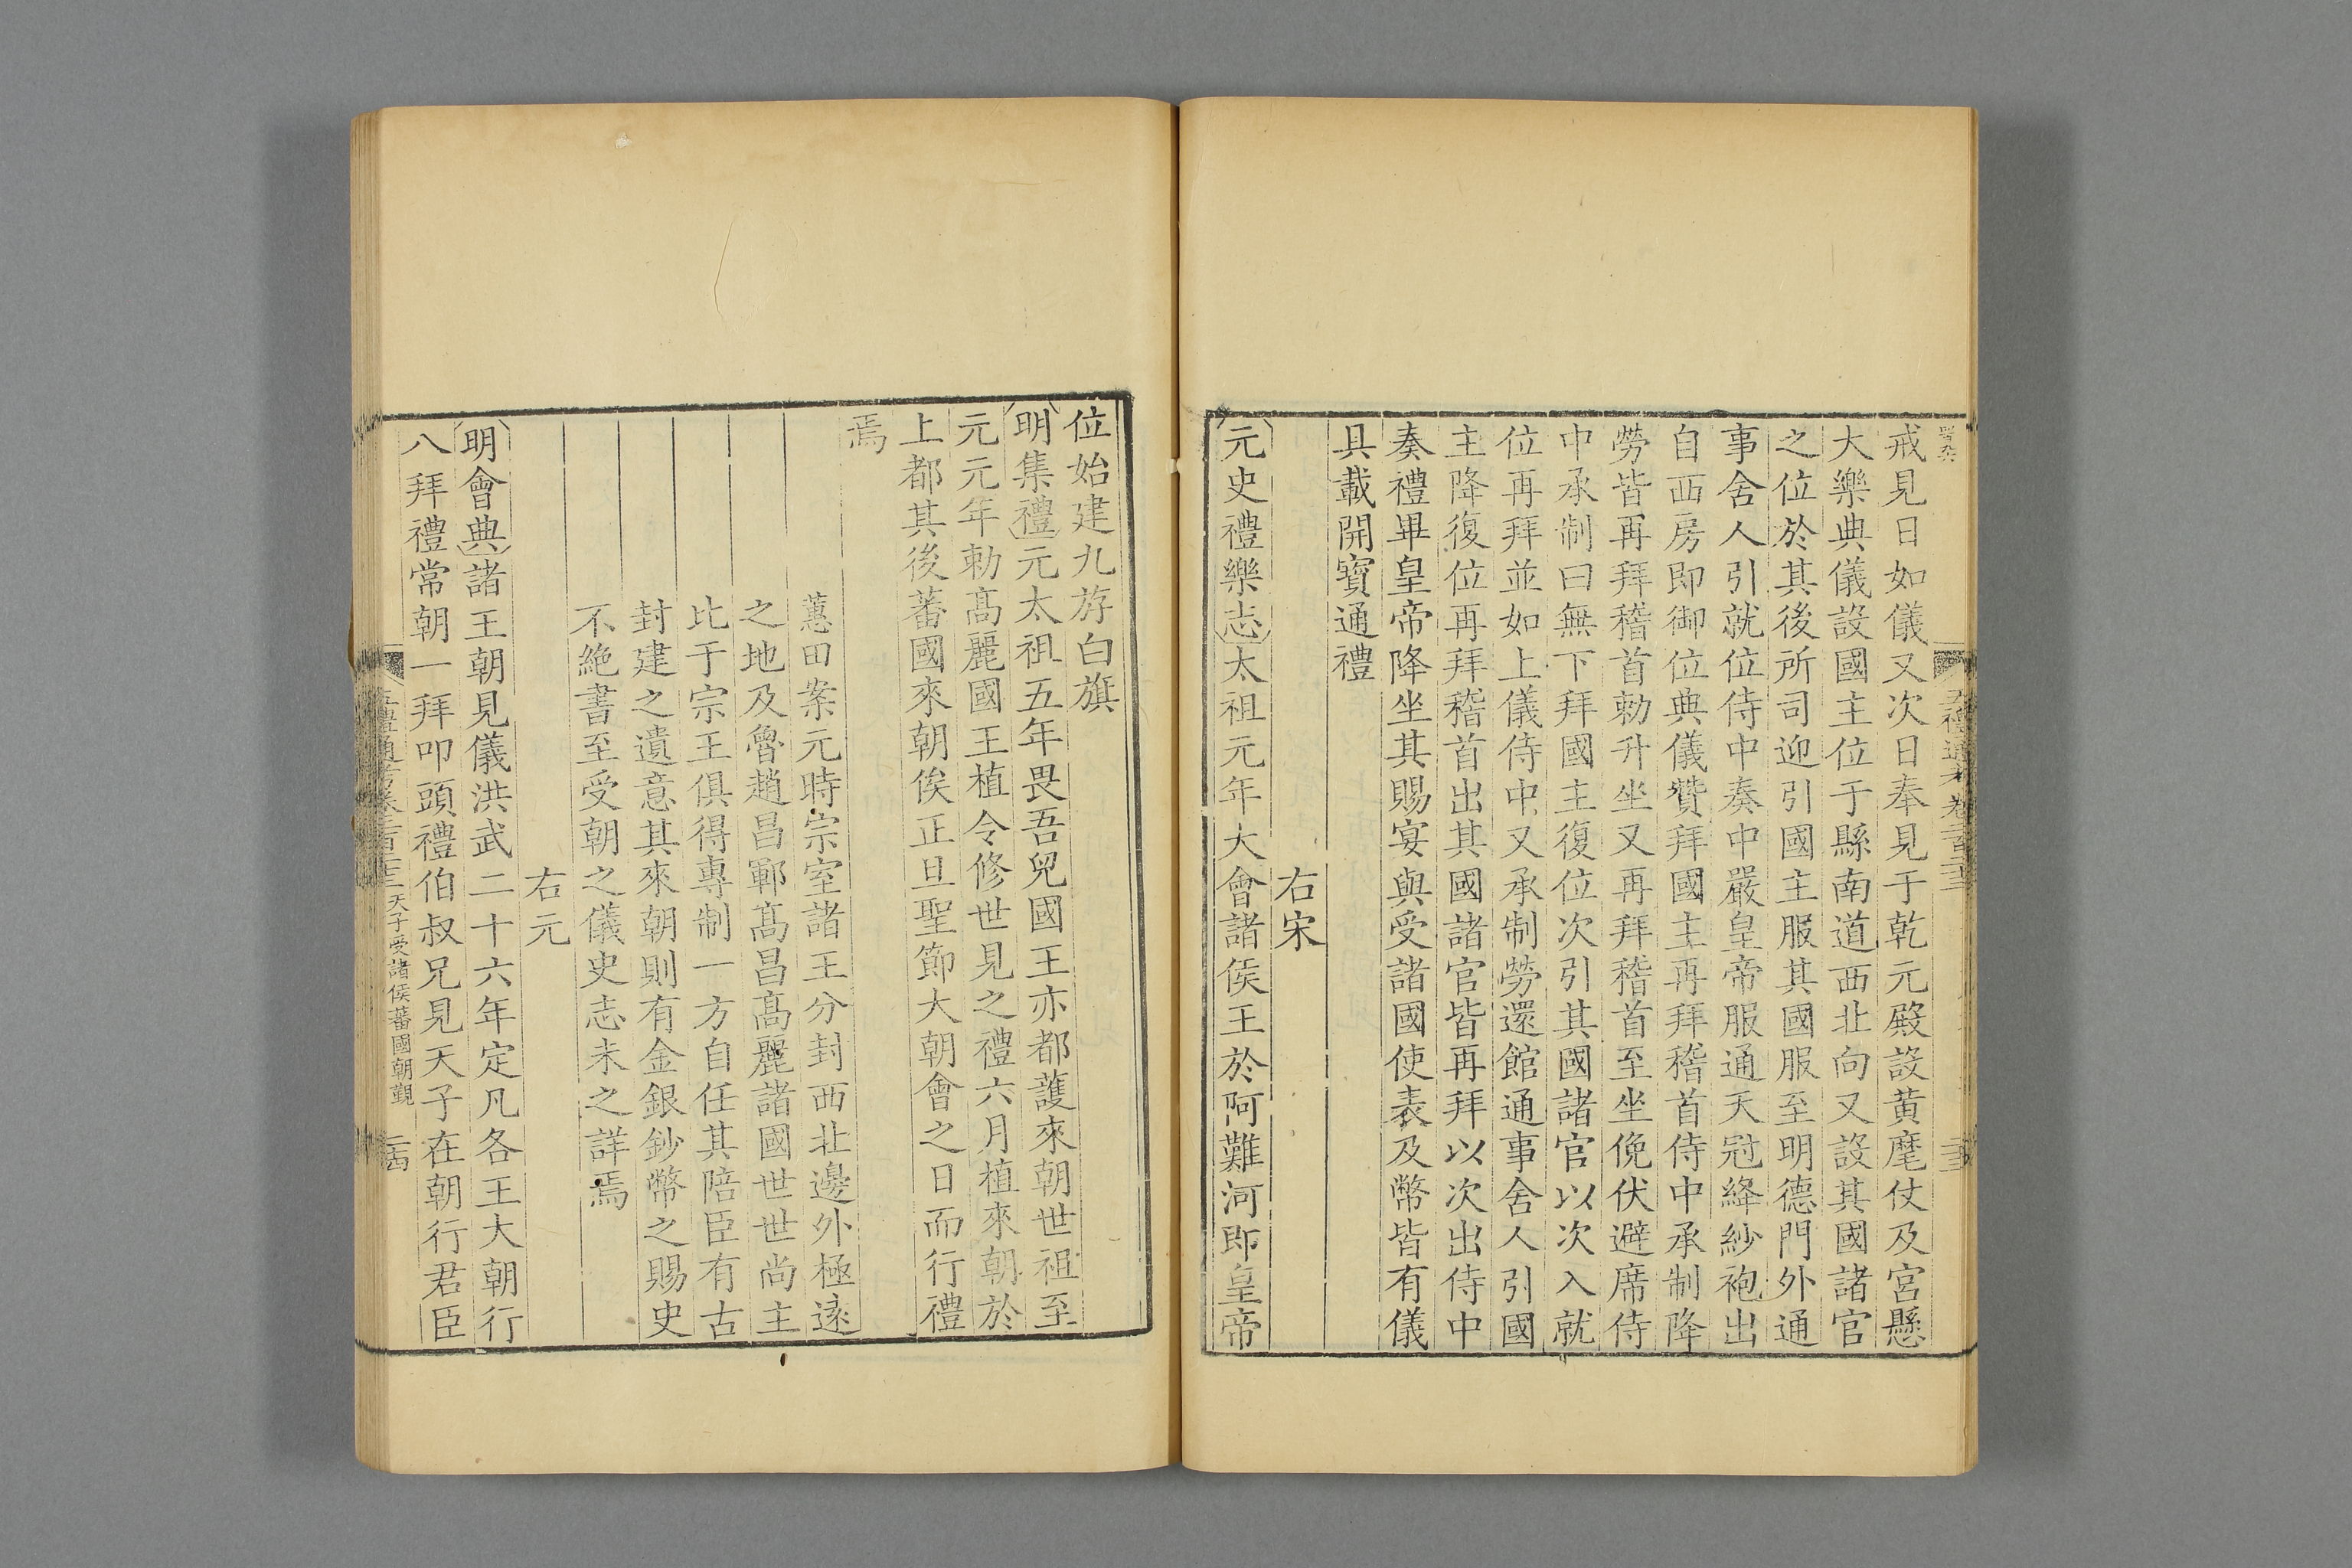 戒見日如儀又次日奉見于乾元殿設黃麾仗及宮懸
大樂典儀設國主位于縣南道西北向又設其國諸官
之位於其後所司迎引國主服其國服至明德門外通
事舍人引就位侍中奏中嚴皇帝服通天冠絳紗袍出
自西房即御位典儀贊拜國主再拜稽首侍中承制降
勞皆再拜稽首勅升坐又再拜稽首至坐俛伏避席侍
中承制曰無下拜國主復位次引其國諸官以次入就
位再拜並如上儀侍中又承制勞還館通事舍人引國
主降復位再拜稽首出其國諸官皆再拜以次出侍中
奏禮畢皇帝降坐其賜宴與受諸國使表及幣皆有儀
具載開寶通禮
右宋
元史禮樂志太祖元年大會諸侯王於阿難河即皇帝
位始建九斿白旗
明集禮元太祖五年畏吾兒國王亦都護來朝世祖至
元元年勅高麗國王植令修世見之禮六月植來朝於
上都其後蕃國來朝俟正旦聖節大朝會之日而行禮
焉
蕙田案元時宗室諸王分封西北邊外極遠
之地及魯趙昌鄆高昌高麗諸國世世尚主
比于宗王俱得專制一方自任其陪臣有古
封建之遺意其來朝則有金銀鈔幣之賜史
不絶書至受朝之儀史志未之詳焉
右元
明會典諸王朝見儀洪武二十六年定凡各王大朝行
八拜禮常朝一拜叩頭禮伯叔兄見天子在朝行君臣
五禮通考卷二百二十二 天子受諸侯蕃國朝覲 二十四